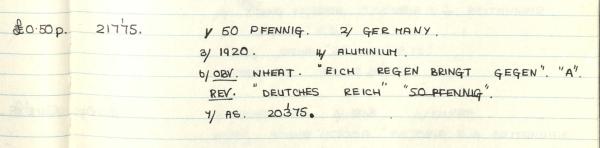 £0.50p. 21/1/75. 1/ 50 PFENNIG. 2/ GERMANY.
3/ 1920. 4/ ALUMINIUM.
6/ OBV. WHEAT. "EICH REGEN BRINGT GEGEN". "A".
REV. "DEUTCHES REICH" "50 PFENNIG".
7/ AS. 20/1/75.